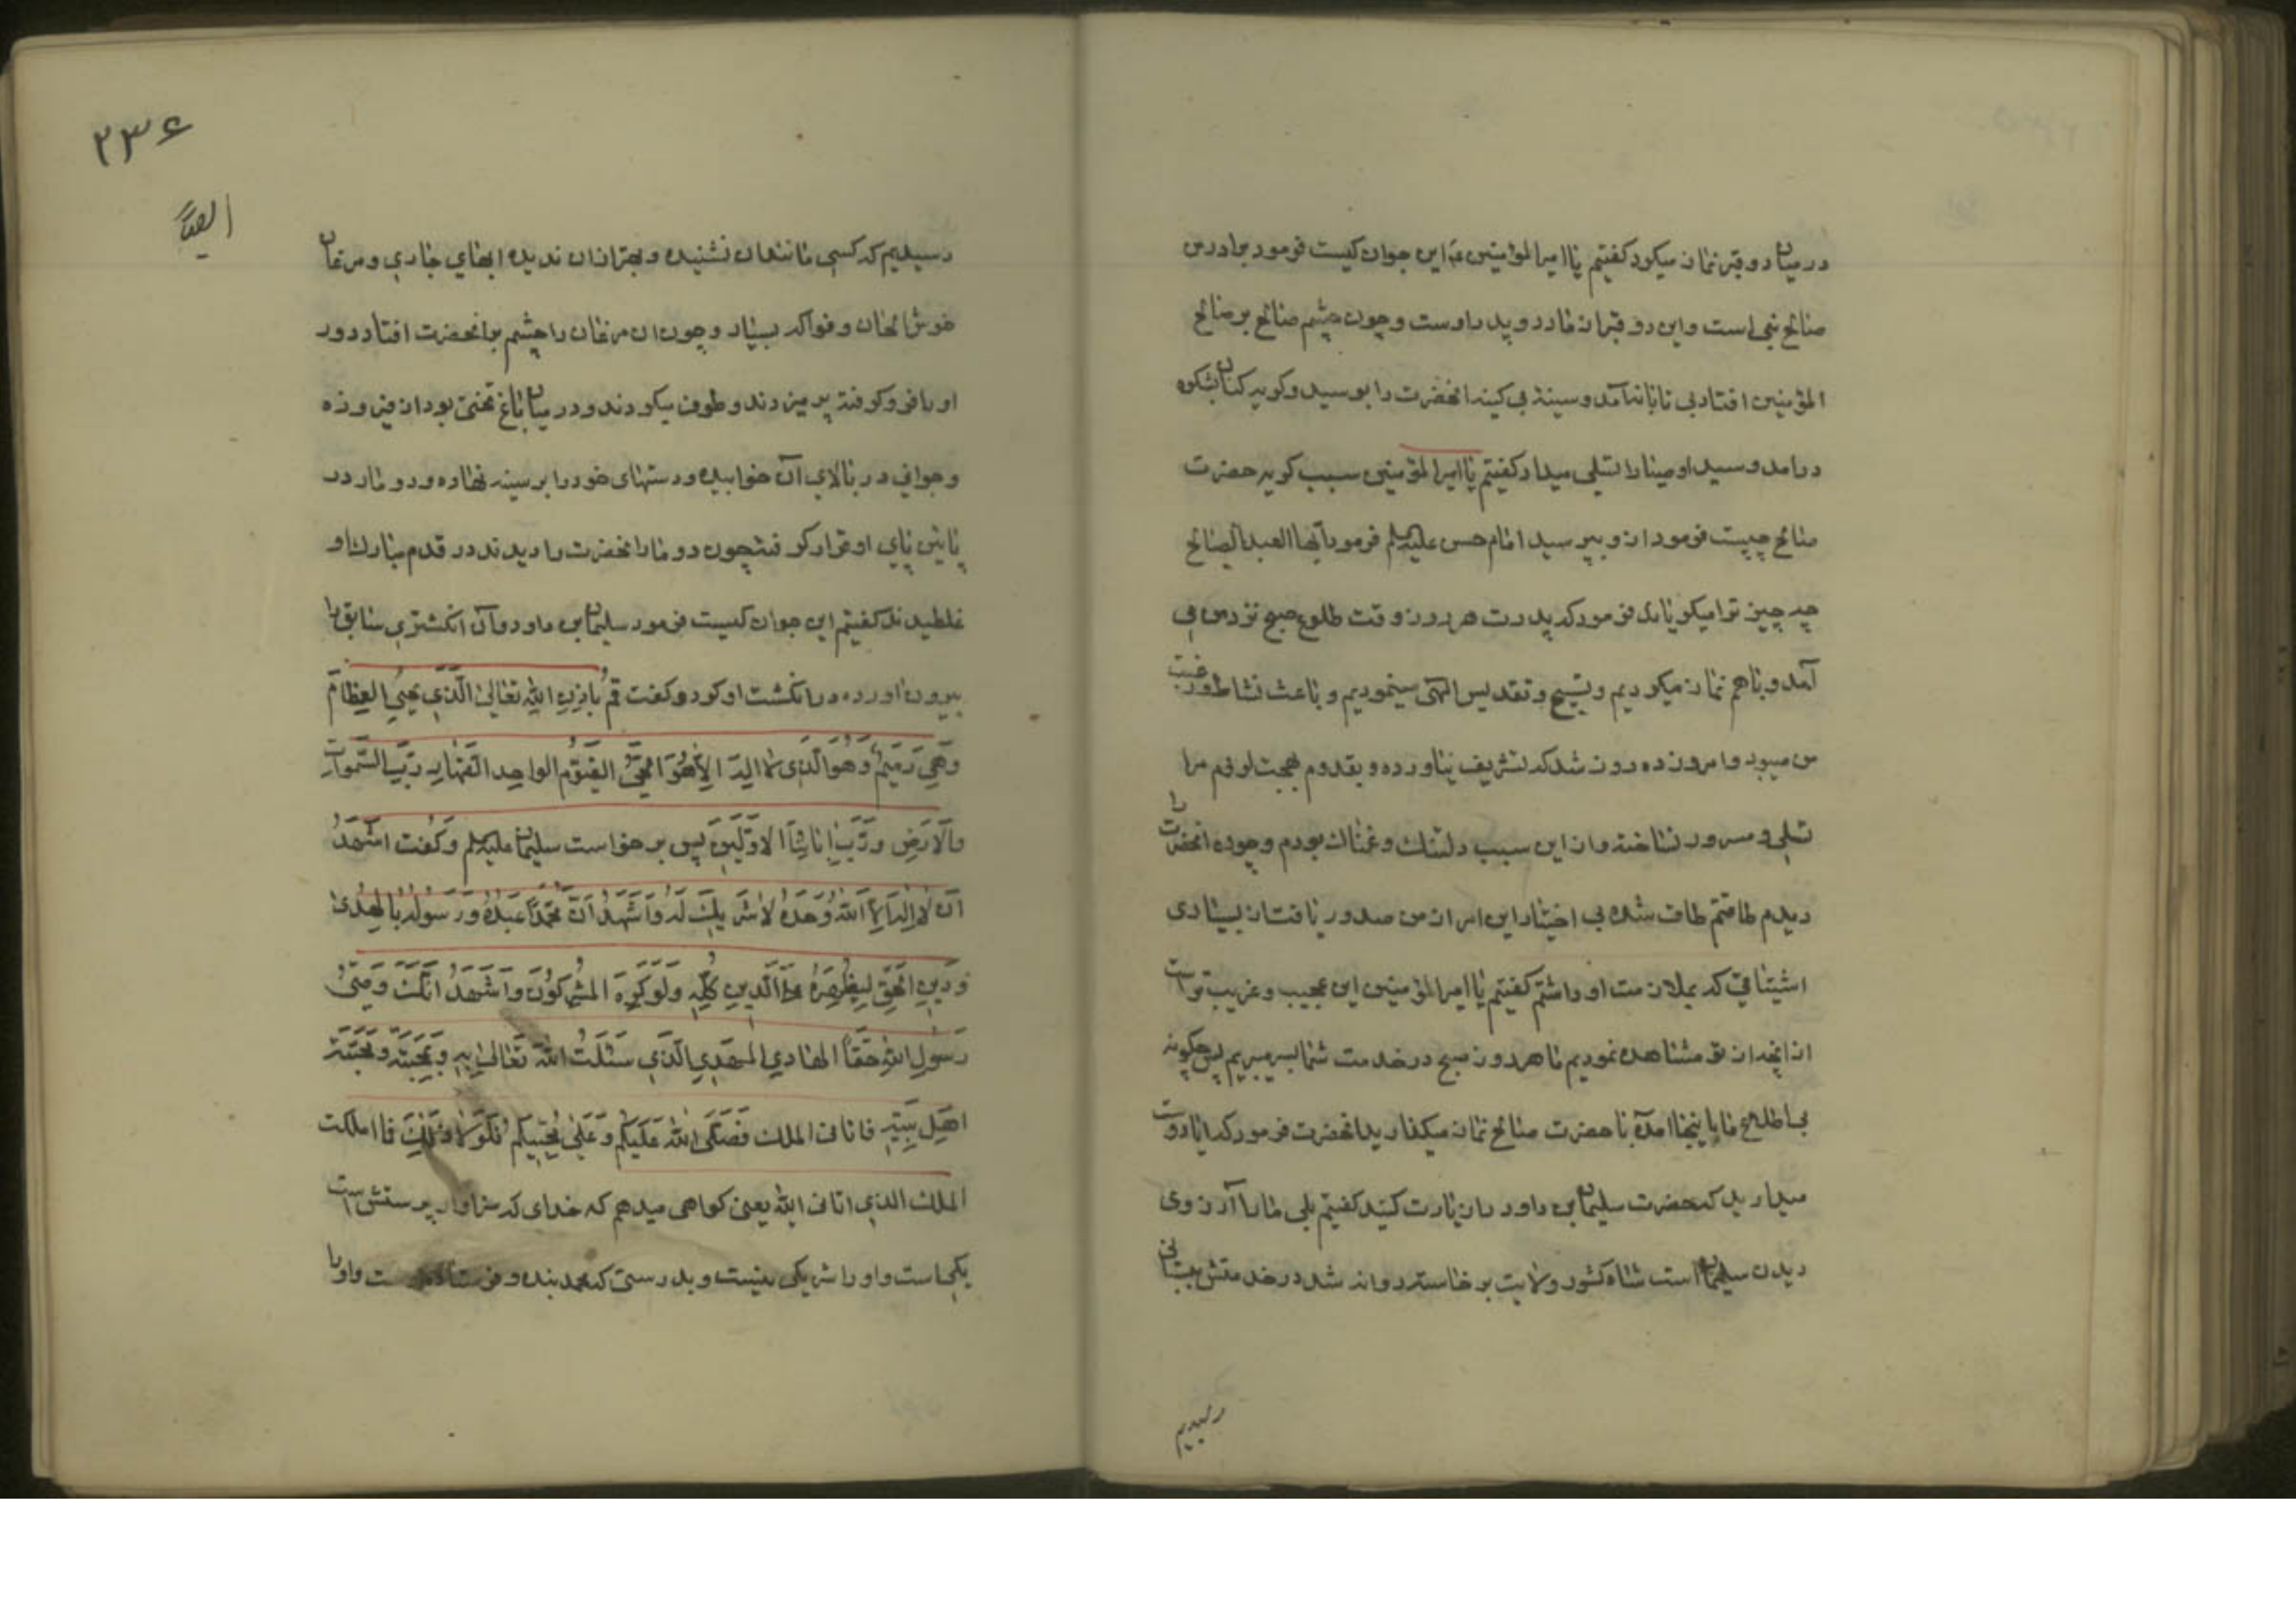 در میان دو قبر نماز میکرد کفتیم یا امیرالمؤمنین این جوان کیست فرمود برادرم
صالح نبی است و این دو قبر از مادر و پدر اوست و چون چشم صالح بر صالح
المؤمنین افتاد بی تابانه آمد و سینهٔ بی کینه انحضرت را بوسید و کریه کنان بشکوه
درامد و سید اوصیا او را تسلی میداد کفتیم یا امیرالمؤمنین سبب کریه حضرت
صالح چیست فرمود از و بپرسید امام حسن علیه السلم فرمود ایها العبد الصالح
چه چیز ترا میکریاند فرمود که پدرت هر روز وقت طلوع صبح نزد من می
آمد و با هم نماز میکردیم و تسبیح و تقدیس الهی مینمودیم و باعث نشاط و رغبت
من میبود و امروز ده روز شد که تشریف نیاورده و بقدوم بهجت لزوم مرا
تسلی و مسرور نساخته و از این سبب دلتنك و غمناك بودم و چون انحضرت را
دیدم طاقتم طاق شده بی اختیار این امر از من صدور یافت از بسیاری
اشتیاقی که بملازمت او داشتم کفتیم یا امیرالمؤمنین این عجیب و غریب تر است
از انچه از تو مشاهده نمودیم ما هر روز صبح در خدمت شما بسر میبریم پس چکونه
بی اطلاع ما باینجا امده با حضرت صالح نماز میکذارید انحضرت فرمود که ایا دوست
میدارید که حضرت سلیمان بن داود را زیارت کنید کفتیم بلی ما را آرزوی
دیدن سلیمان است شاه کشور ولایت بر خاسته روانه شد در خدمتش ببستانی
رسیدیم
۲۳۶
ایضاً
رسیدیم که کسی مانند ان نشنیده و بهتر از ان ندیده ابهای جاری و مرغان
خوش الحان و فواکه بسیار و چون ان مرغان را چشم بر انحضرت افتاد دور
او را فرو کرفته پر میزدند و طوف میکردند و در میان باغ تختی بود از فیروزه
و جوانی در بالای آن خوابیده و دستهای خود را بر سینه نهاده و دو مار در
پائین پای او قرار کرفته چون دو مار انحضرت را دیدند در قدم مبارك او
غلطیدند کفتیم این جوان کیست فرمود سلیمان بن داود و آن انکشتری سابق را
بیرون اورده در انکشت او کرد و کفت قُم باِذنِ اللهِ تعالی الَّذی یُحییِ العِظامَ
وَهِیَ رَمیمٌ وَهُوَ الَّذی لا الهَ الاّ هُوَ الحَیُّ القَیّومُ الواحِد القَهّار رَبُّ السَّموات
وَالاَرضِ ورَبُّ ابائِنَا الاَوَّلینَ پس بر خواست سلیمان علیه السلم وکفت اَشهَدُ
اَن لا الهَ اِلاّ اللهُ وَحدَهُ لا شَریكَ لَهُ وَاَشهَدُ اَنَّ مُحَمَّداً عَبدُهُ وَرَسُولُهُ بالهُدی
وَدینِ الحَقِّ لِیُظهِرَهُ عَلَی الَّدینِ کُلِّهِ وَلَو کَرِهَ المُشرِکُونَ وَاَشهَدُ اَنَّكَ وَصیُّ
رَسولِ اللهِ حَقّاً الهادی المهدی الَّذی سَئَلتُ اللهَ تَعالی بِهِ وَبِمحَبَّتِه وَمَحَبَّة
اَهلِ بَیتِه فاتانی الملك فَصَلَّی اللهُ عَلَیکُم وَعَلی مُحِبّیکُم فَلَولا ذلِكَ فا املکت
الملك الذی اتانی الله یعنی کواهی میدهم که خدای که سزاوار پرستش است
یکیاست و او را شریکی نیست و بدرستی که محمد بنده و فرستاده اوست و او را